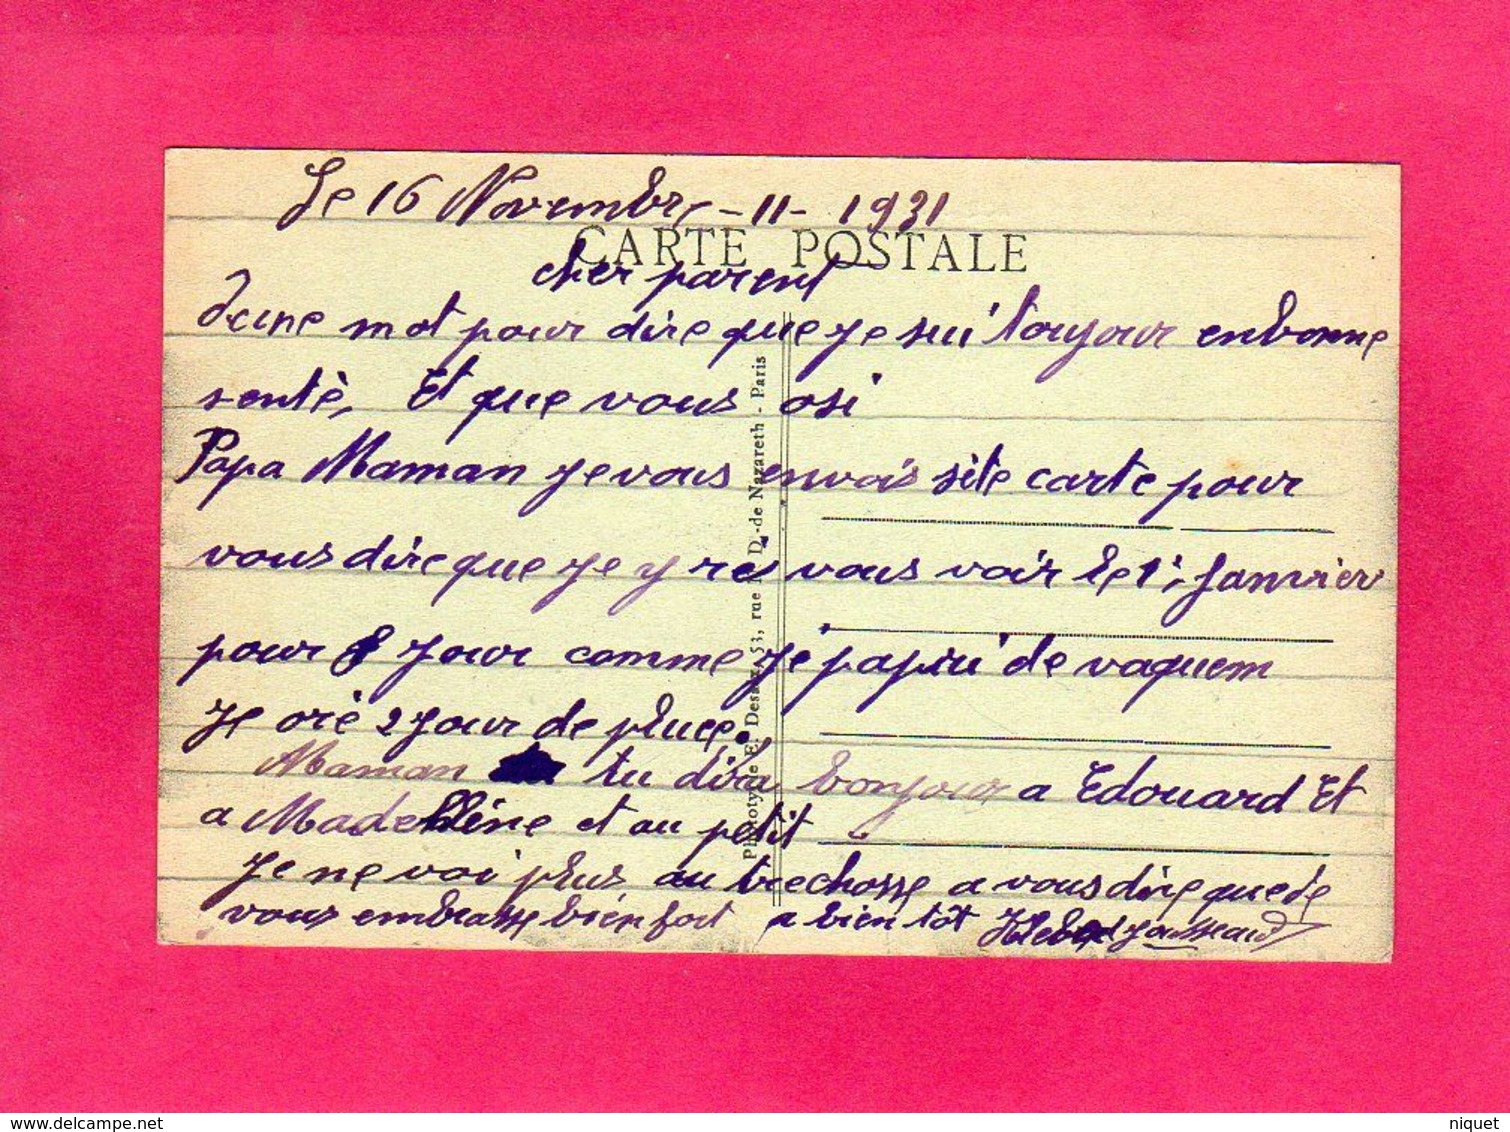 Le 16 Novembre -11- 1931
CARTE POSTALE
cher parent
mot pour dire que je sui toujour en bonne
senté, Et que vous osi
Papa Maman je vous envois site carte pour
vous dire que je y ré vous voir le 1; Janvier
pour 8 jour comme je papiu de vaquem
je orè 2 jour de pluce.
Maman tu dira bonjour a Edouard Et
a Madelleine et au petit
je ne voi plus au trechosse a vous dire que de
vous embrasse bien fort a bien tôt
Phototypie E. Desaix, 53, rue N.-D.-de Nazareth - Paris
niquet